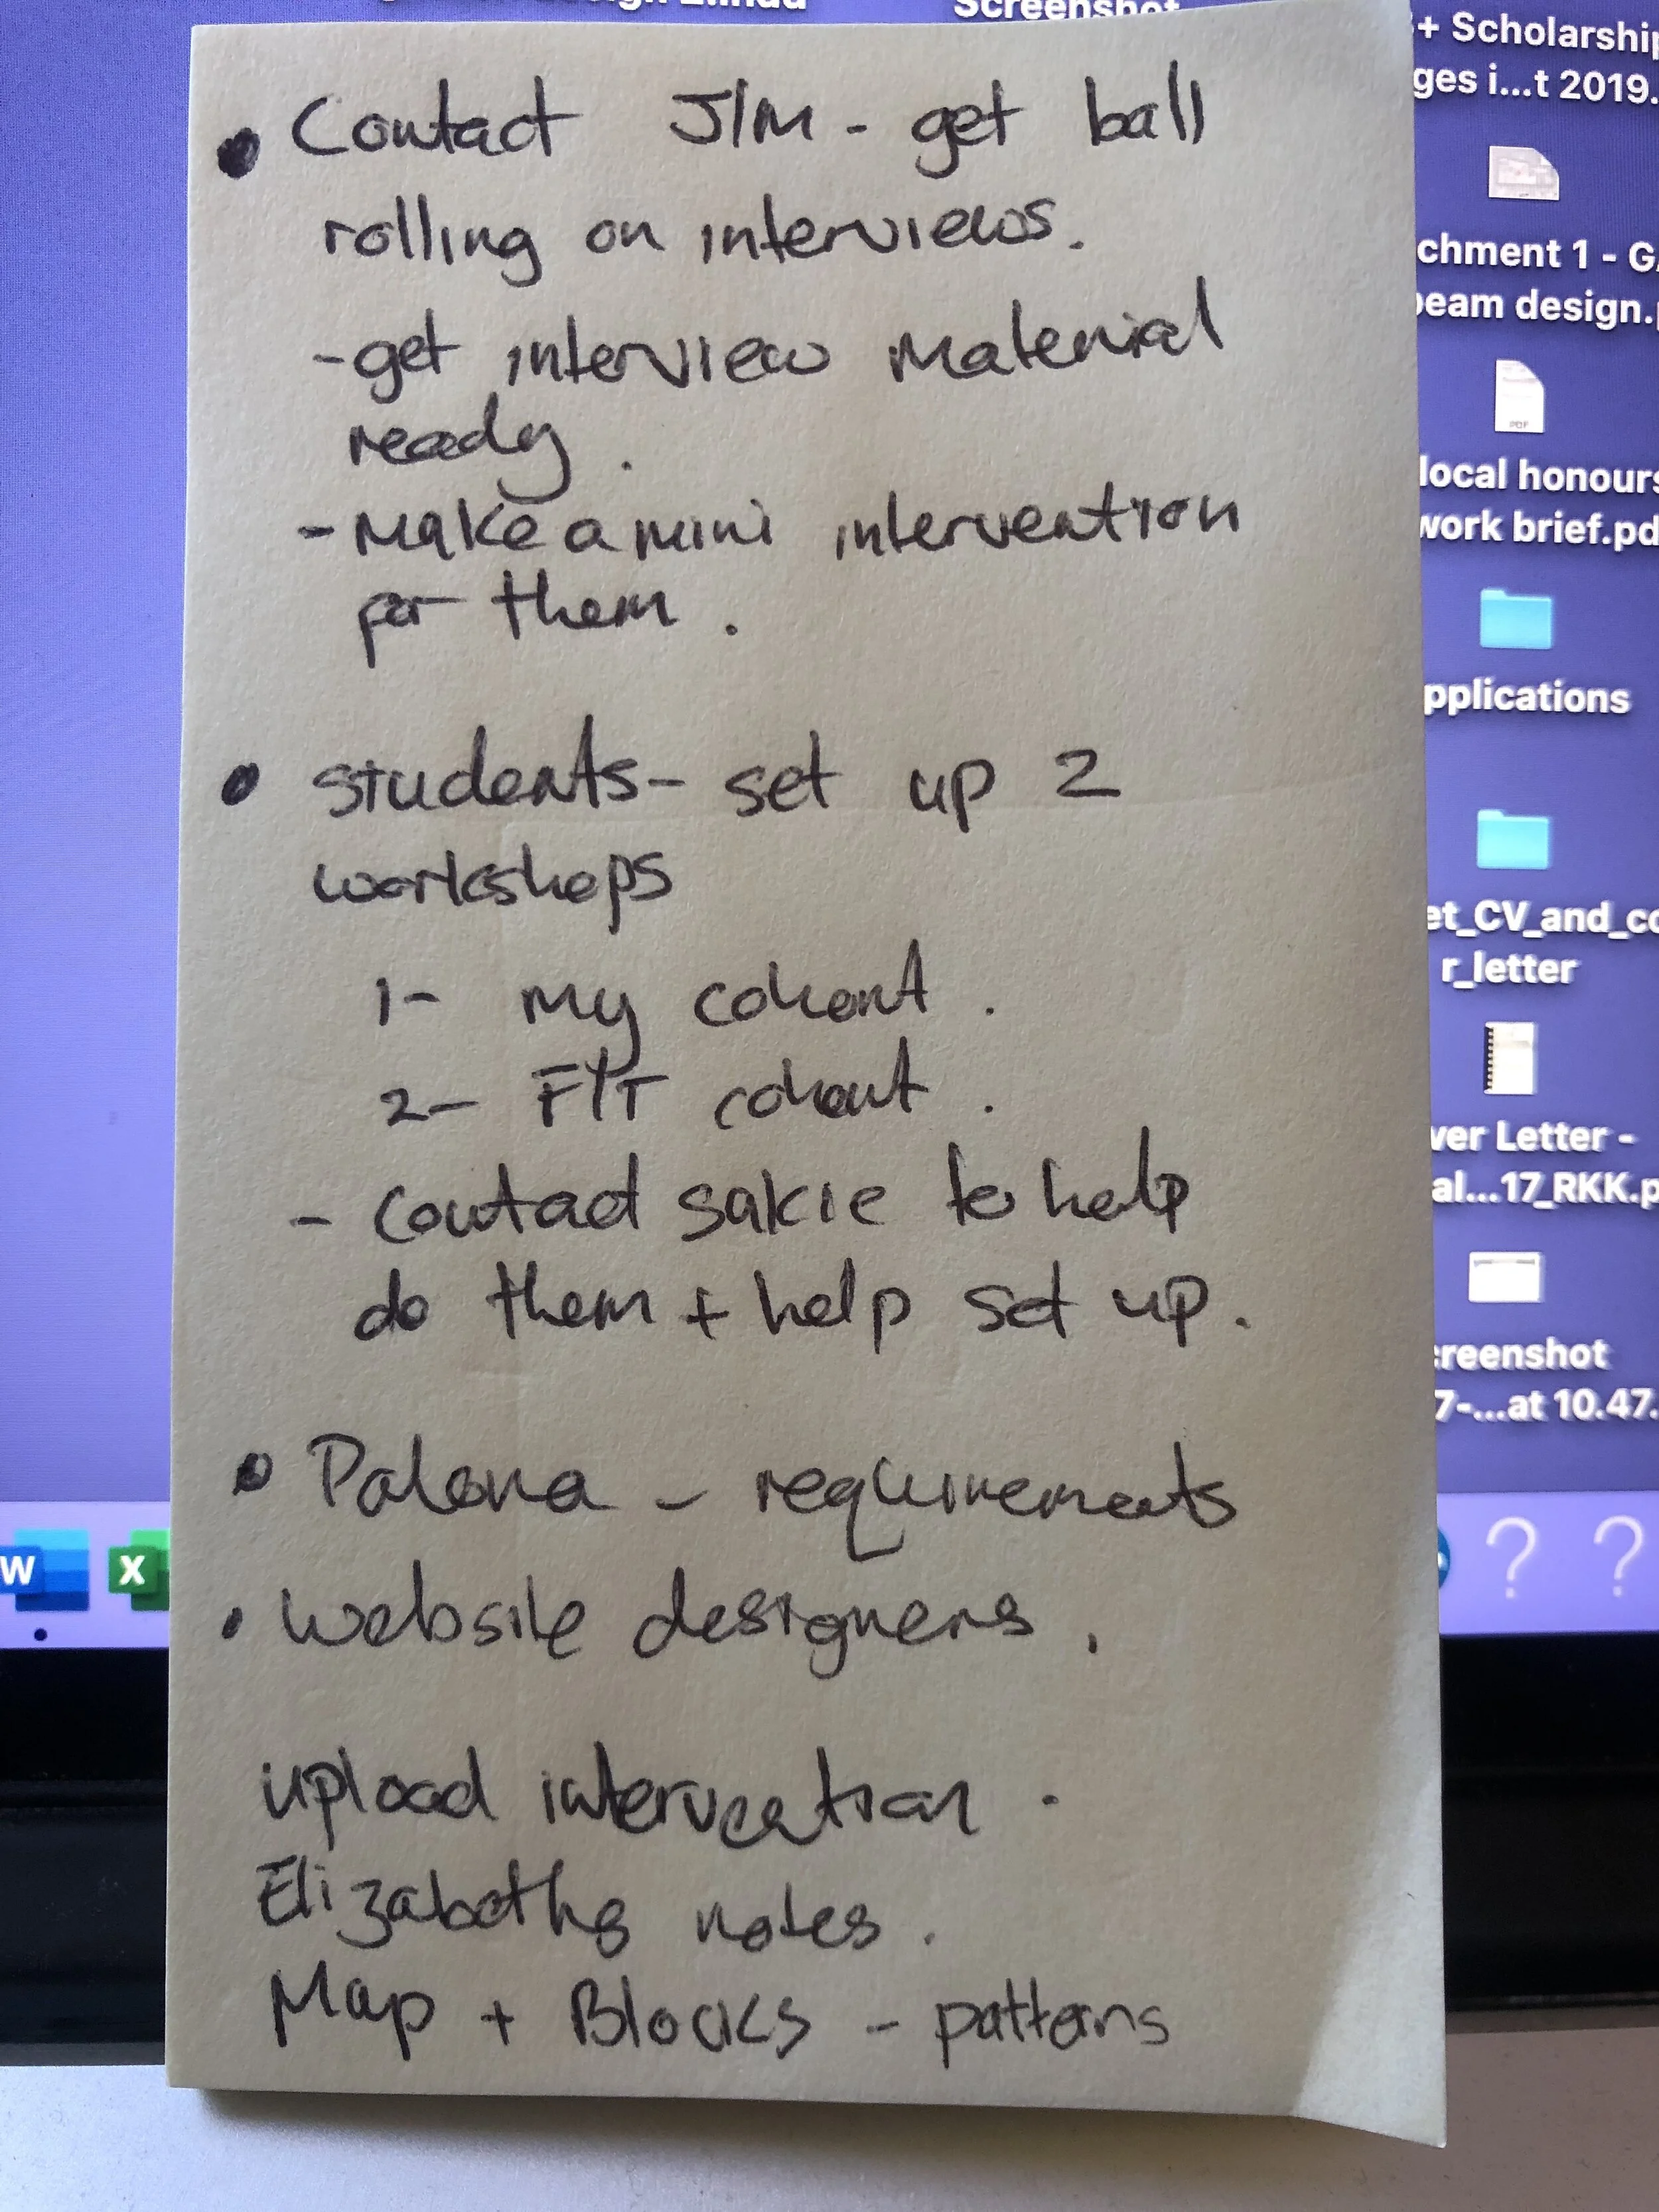 Screenshot
+ Scholarship
ges i...t 2019.
• Contact JIM - get ball
rolling on interviews.
- get interview material
ready.
- Make a mini intervention
for them.
• students - set up 2
workshops
1- my cohort.
2- FYT cohort.
- contact sakie to help
do them + help set up.
• Palona - requirements
• website designers.
upload intervention.
Elizabeths notes.
Map + Blocks - patterns
chment 1 - GA
beam design.p
local honours
work brief.pd
pplications
et_CV_and_co
r_letter
ver Letter -
al...17_RKK.p
creenshot
7-...at 10.47.
PDF
W
X
? ?